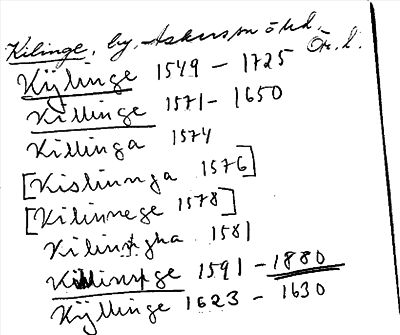 Kilinge, by, Askersunds lfs. Ör. l.
Kijlinge 1549 – 1725
Killinge 1571 – 1650
Killinga 1574
[Kislinnga 1576]
[Kilinnege 1578]
Kilingha 1581
Killinge 1591 – 1880
Kijllinge 1623 – 1630